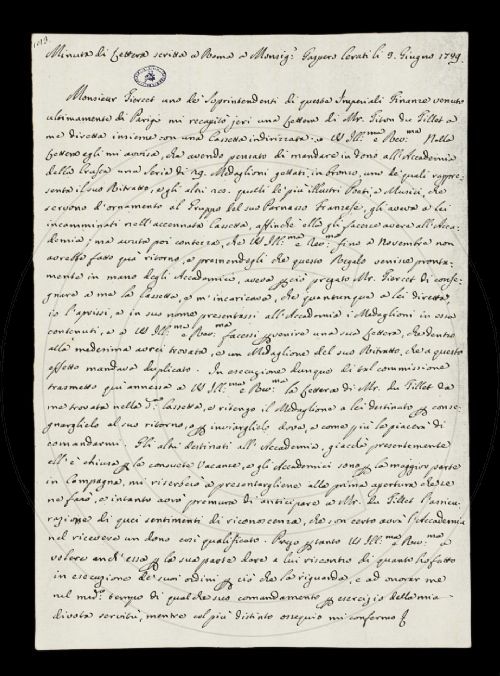 1013.
Minuta di Lettera scritta a Roma a Monsig.r Gaspero Cerati li 3. Giugno 1749.
Monsieur Piercet uno de' Soprintendenti di questa Imperiali Finanze venuto
ultimamente di Parigi mi recapitò jeri una Lettera di Mr. Titon du Tillet a
me diretta insieme con una Cassetta indirizzata a VS Ill.ma e Rev.ma Nella
Lettera egli mi avvisa, che avendo pensato di mandare in dono all'Accademia
della Crusca una Serie di 29. Medaglioni gettati in bronzo, uno de' quali rappre-
senta il suo Ritratto, e gli altri quelli de' più illustri Poeti, e Musici, che
servono d'ornamento al Gruppo del suo Parnasso Franzese, gli aveva a lei
incamminati nell'accennata Cassetta, affinchè ella gli facesse avere all'Acca-
demia; ma avuta poi contezza, che VS Ill.ma e Rev.ma fino a Novembre non
avrebbe fatto quà ritorno, e premendogli che questo Regalo venisse pronta-
mente in mano degli Accademici, aveva perciò pregato Mr. Piercet di conse-
gnare a me la Cassetta, e m'incaricava, che quantunque a lei diretta,
io l'aprissi, e in suo nome presentassi all'Accademia i Medaglioni in essa
contenuti, e a VS Ill.ma e Rev.ma facessi pervenire una sua Lettera, che dentro
alla medesima avrei trovata, e un Medaglione del suo Ritratto, che a questo
effetto mandava duplicato. In esecuzione dunque di tal commissione
trasmetto qui annessa a VS Ill.ma e Rev.ma la Lettera di Mr. du Tillet da
me trovata nella d.a Cassetta, e ritengo il Medaglione a lei destinato per conse-
gnarglielo al suo ritorno, o per inviarglielo dove, e come più le piacerà di
comandarmi. Gli altri destinati all'Accademia, giacchè presentemente
ell'è chiusa per le consuete Vacanze, e gli Accademici sono per la maggior parte
in Campagna, mi riserberò a presentargliene alla prima apertura che se
ne farà, e intanto avrò premura di anticipare a Mr. du Tillet l'assicu-
razione di quei sentimenti di riconoscenza, che son certo avrà l'Accademia
nel ricevere un dono così qualificato. Prego pertanto VS Ill.ma e Rev.ma a
volere anch'essa per la sua parte dare a lui riscontro di quanto ho fatto
in esecuzione de' suoi ordini per ciò che la riguarda, e ad onorar me
nel med.o tempo di qualche suo comandamento per esercizio della mia
divota servitù, mentre col più distinto ossequio mi confermo